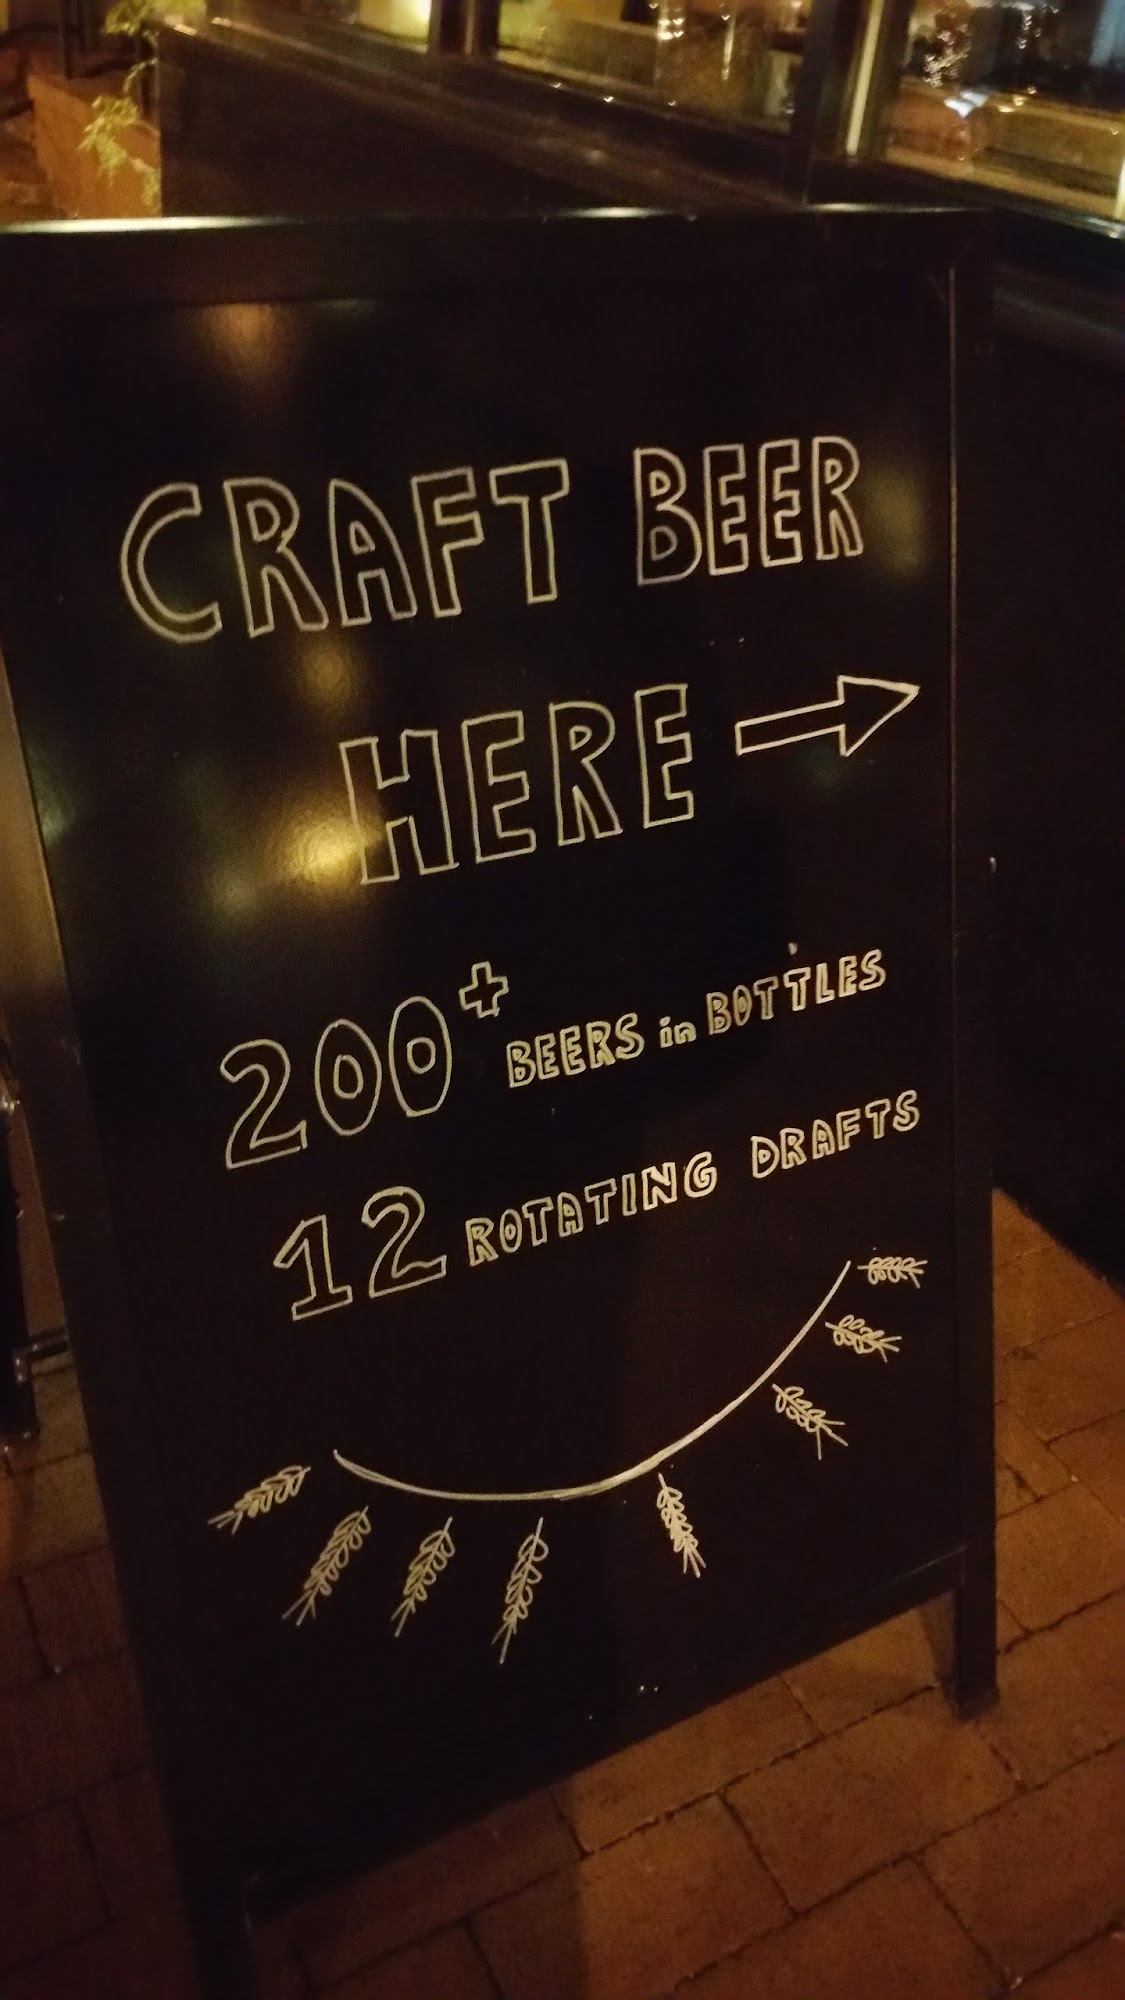 CRAFT BEER
HERE →
200+ BEERS in BOTTLES
12 ROTATING DRAFTS